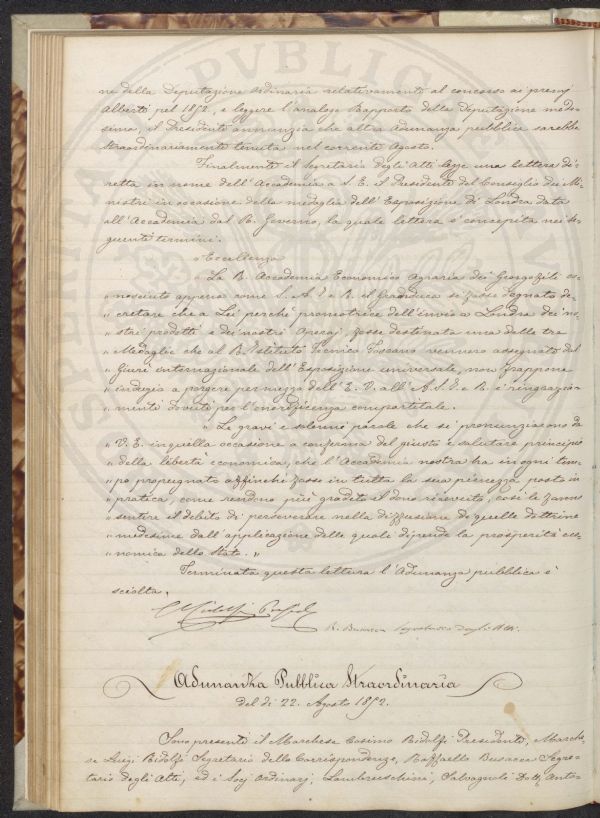 ne della Deputazione ordinaria relativamente al concorso ai premj
Alberti pel 1852, e leggere l'analogo Rapporto della Deputazione mede-
sima, il Presidente annunzia che altra adunanza pubblica sarebbe
straordinariamente tenuta nel corrente Agosto.
Finalmente il Segretario degli Atti legge una lettera di-
retta in nome dell'Accademia a S. E. il Presidente del Consiglio dei Mi-
nistri in occasione della medaglia dell'Esposizione di Londra data
all'Accademia dal R. Governo, la quale lettera è concepita nei se-
guenti termini.
" Eccellenza
" La R. Accademia Economico Agraria dei Georgofili co-
" nosciuto appena come S. A. I. e R. il Granduca si fosse degnato de-
" cretare che a Lei perchè promotrice dell'invio a Londra dei no-
" stri prodotti e dei nostri operaj fosse destinata una delle tre
" Medaglie che al R. Istituto Tecnico Toscano vennero assegnate dal
" Giurì internazionale dell'Esposizione universale, non frappone
" indugio a porgere per mezzo dell'E. V. all'A. S. I. e R. i ringrazia-
" menti dovuti per l'onorificenza compartitale.
" Le gravi e solenni parole che si pronunziarono da
" V. E. in quella occasione a conferma del giusto e salutare principio
" della libertà economica, che l'Accademia nostra ha in ogni tem-
" po propugnato affinchè fosse in tutta la sua pienezza posto in
" pratica come rendono più gradito il dono ricevuto, così le fanno
" sentire il debito di perseverare nella diffusione di quelle dottrine
" medesime dall'applicazione delle quali dipende la prosperità eco-
" nomica dello Stato. "
Terminata questa lettura l'Adunanza pubblica è
sciolta.
C. Ridolfi Presid.
R. Busacca Segretario degli Atti.
Adunanza Pubblica Straordinaria
del dì 22. Agosto 1852.
Sono presenti il Marchese Cosimo Ridolfi Presidente, Marche-
se Luigi Ridolfi Segretario delle Corrispondenze, Raffaello Busacca Segre-
tario degli Atti, ed i Socj Ordinarj, Lambruschini, Salvagnoli Dott. Anto-